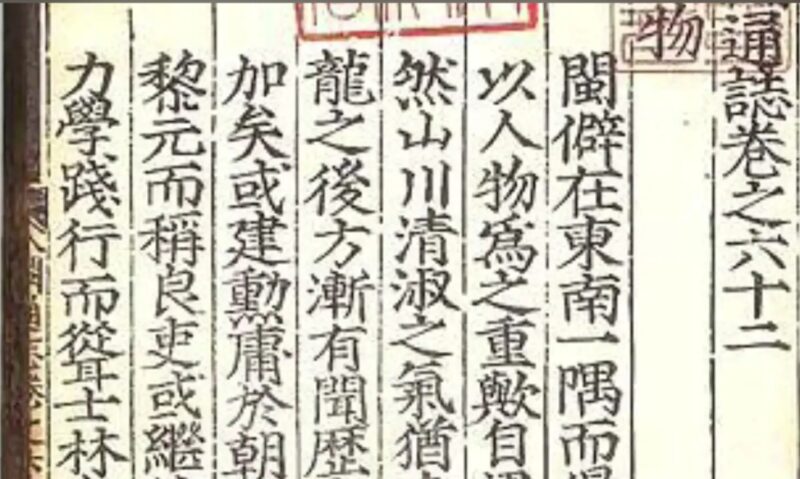 通誌卷之六十二
物
閩僻在東南一隅而
以人物爲之重歟自
然山川清淑之氣猶
龍之後方漸有聞歷
加矣或建勳庸於朝
黎元而稱良吏或繼
力學踐行而從士林